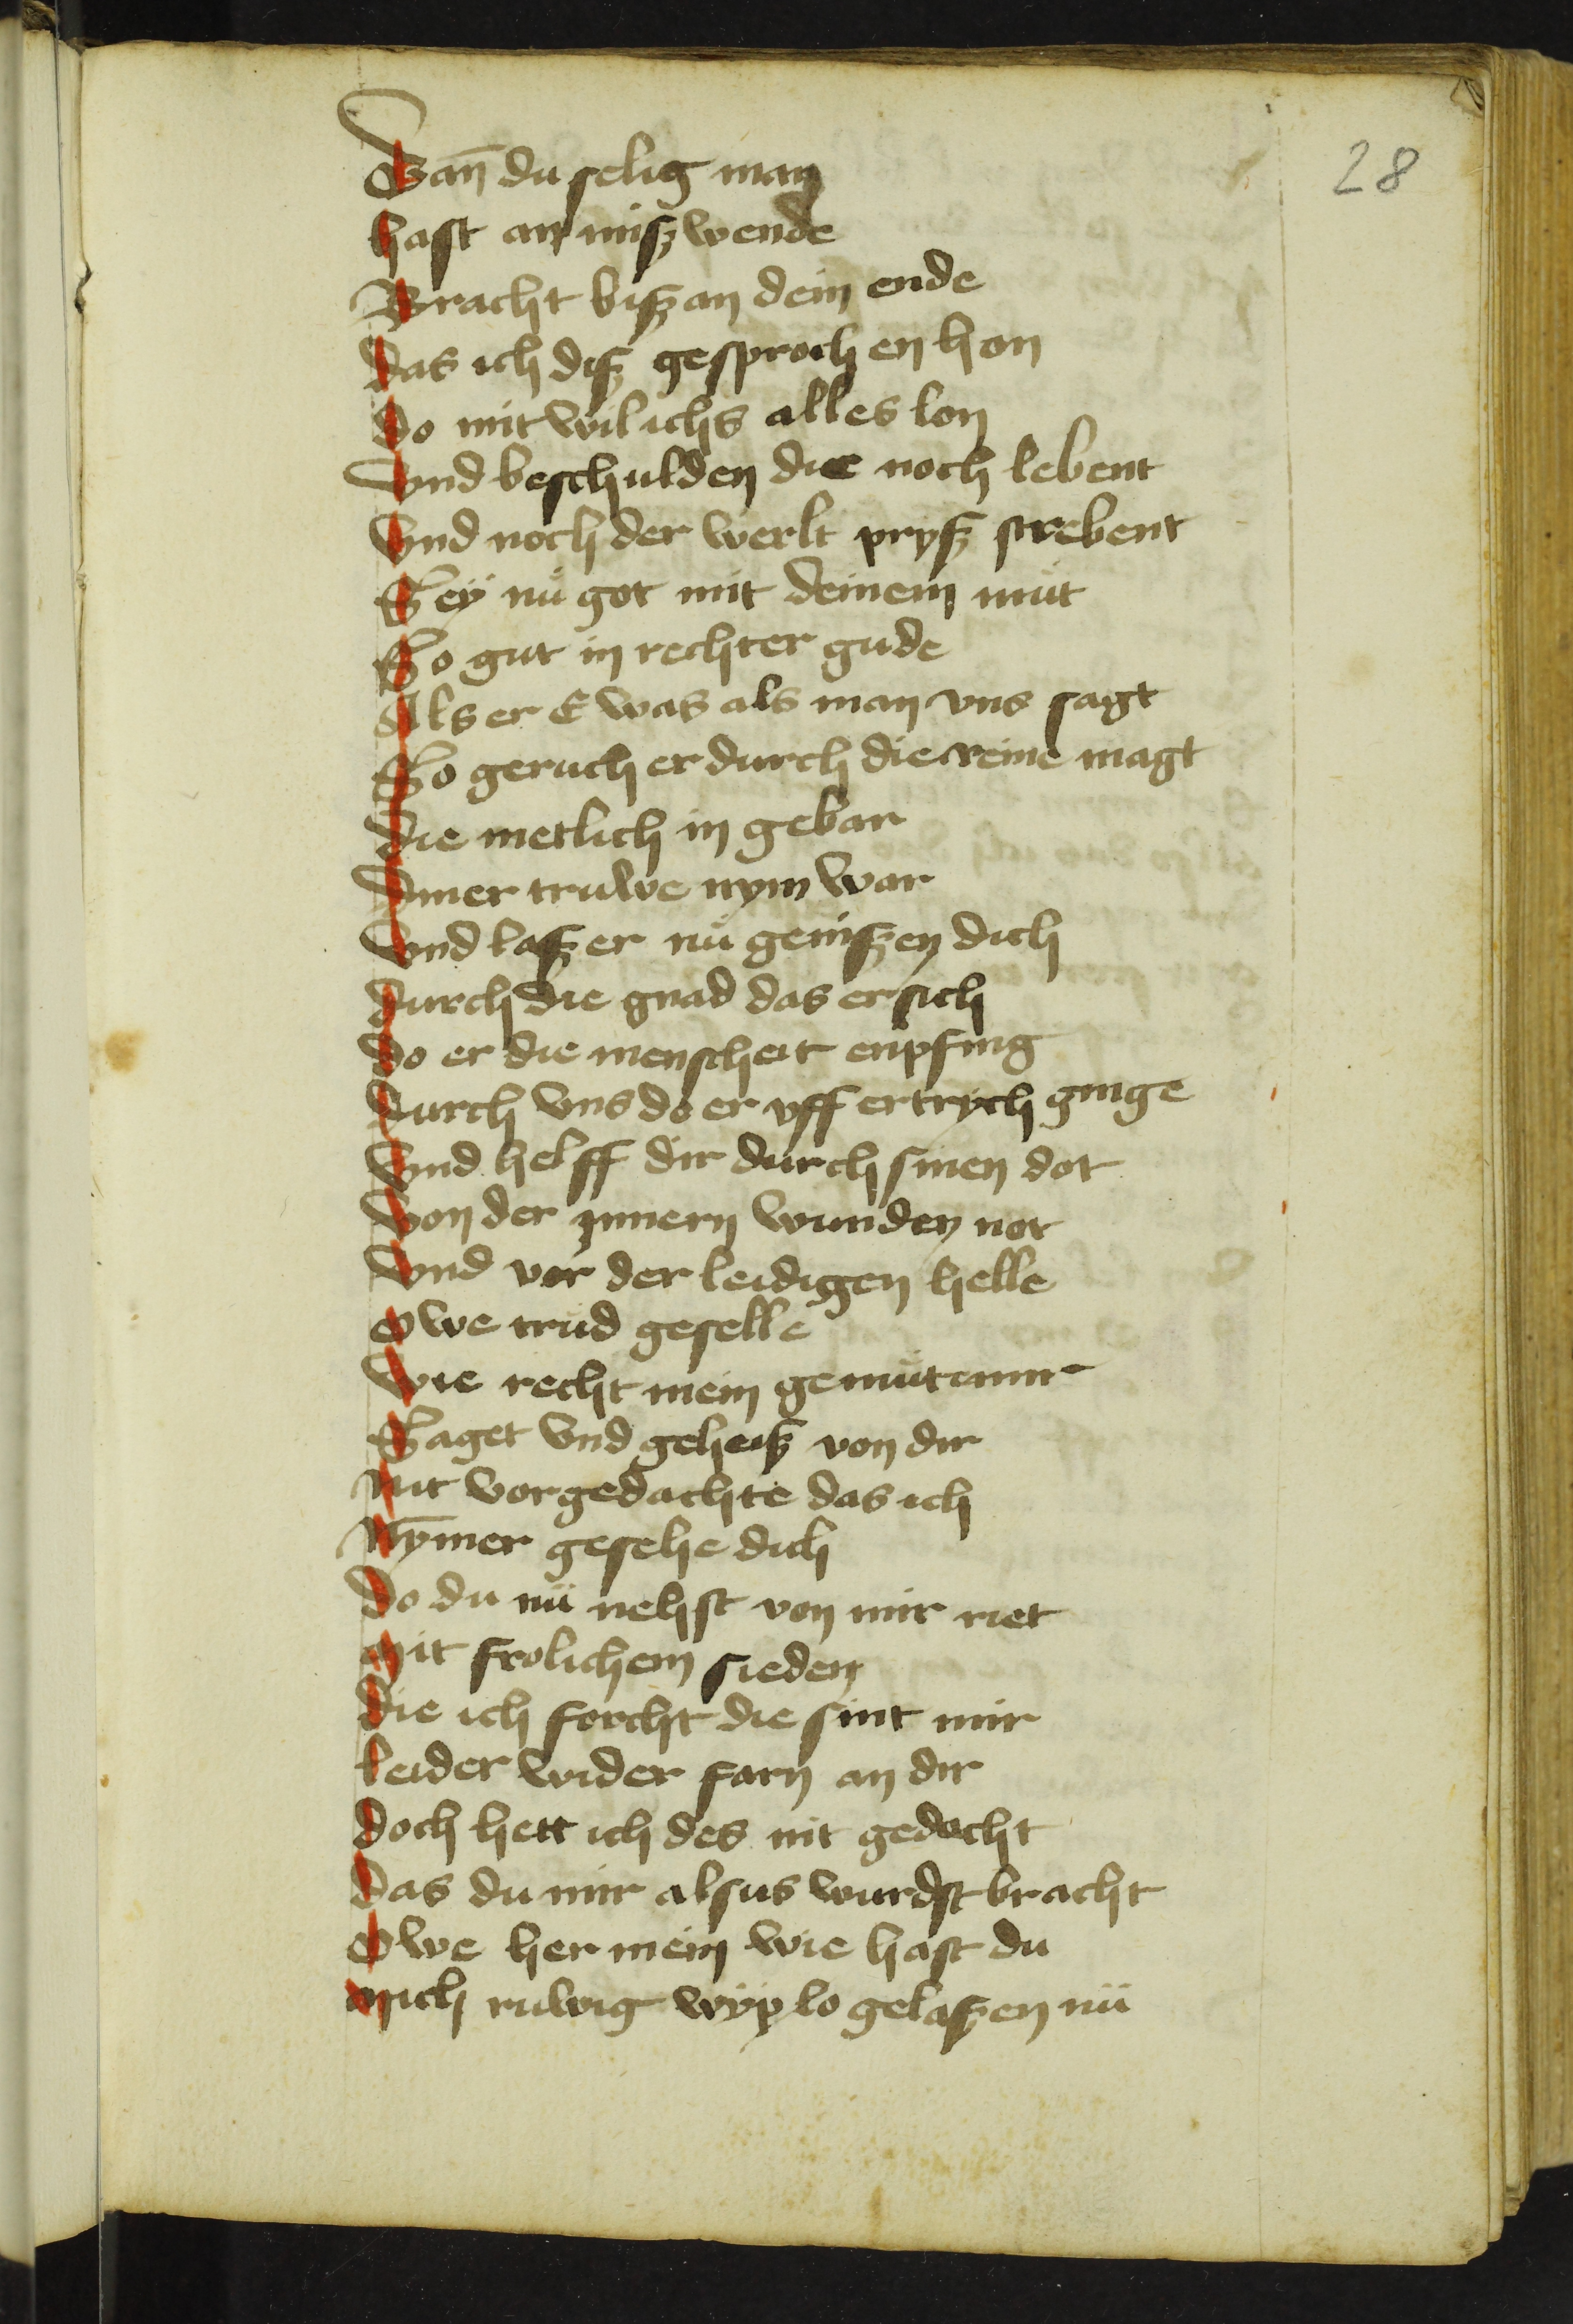 28
Wan̄ du selig man
hast an miszwende
Bracht bisz an dein ende
das ich disz gesprochen hon
do mit wil ichs alles lon
Vnd beschulden die noch lebent
Vnd noch der werlt prysz strebent
Seÿ nü got mit deinem müt
So gut in rechter gude
Als er E was als man vns sagt
So geruch er durch die reine magt
die metlich in gebar
Diner truwe nym war
Vnd lasz er nü geniszen dich
durch die gnad das er sich
do er die menscheit enpfing
durch vns do er vff ertrych ginge
Vnd helff dir durch sinen dot
Von der ynnern wunden not
Vnd vor der leidigen helle
Owe trud geselle
Wie recht mein gemüt mir
Saget vnd geheisz von dir
Mit vorgedachte das ich
Nȳmer gesehe dich
do du nü nehst von mir riet
Mit frolichem sieden
die ich forcht die sint mir
leider wider farn an dir
doch hett ich des nit gedocht
das du mir alsus wurdst bracht
Owe her mein wie hast du
Mich ruwig wÿp lo gelaszen nü